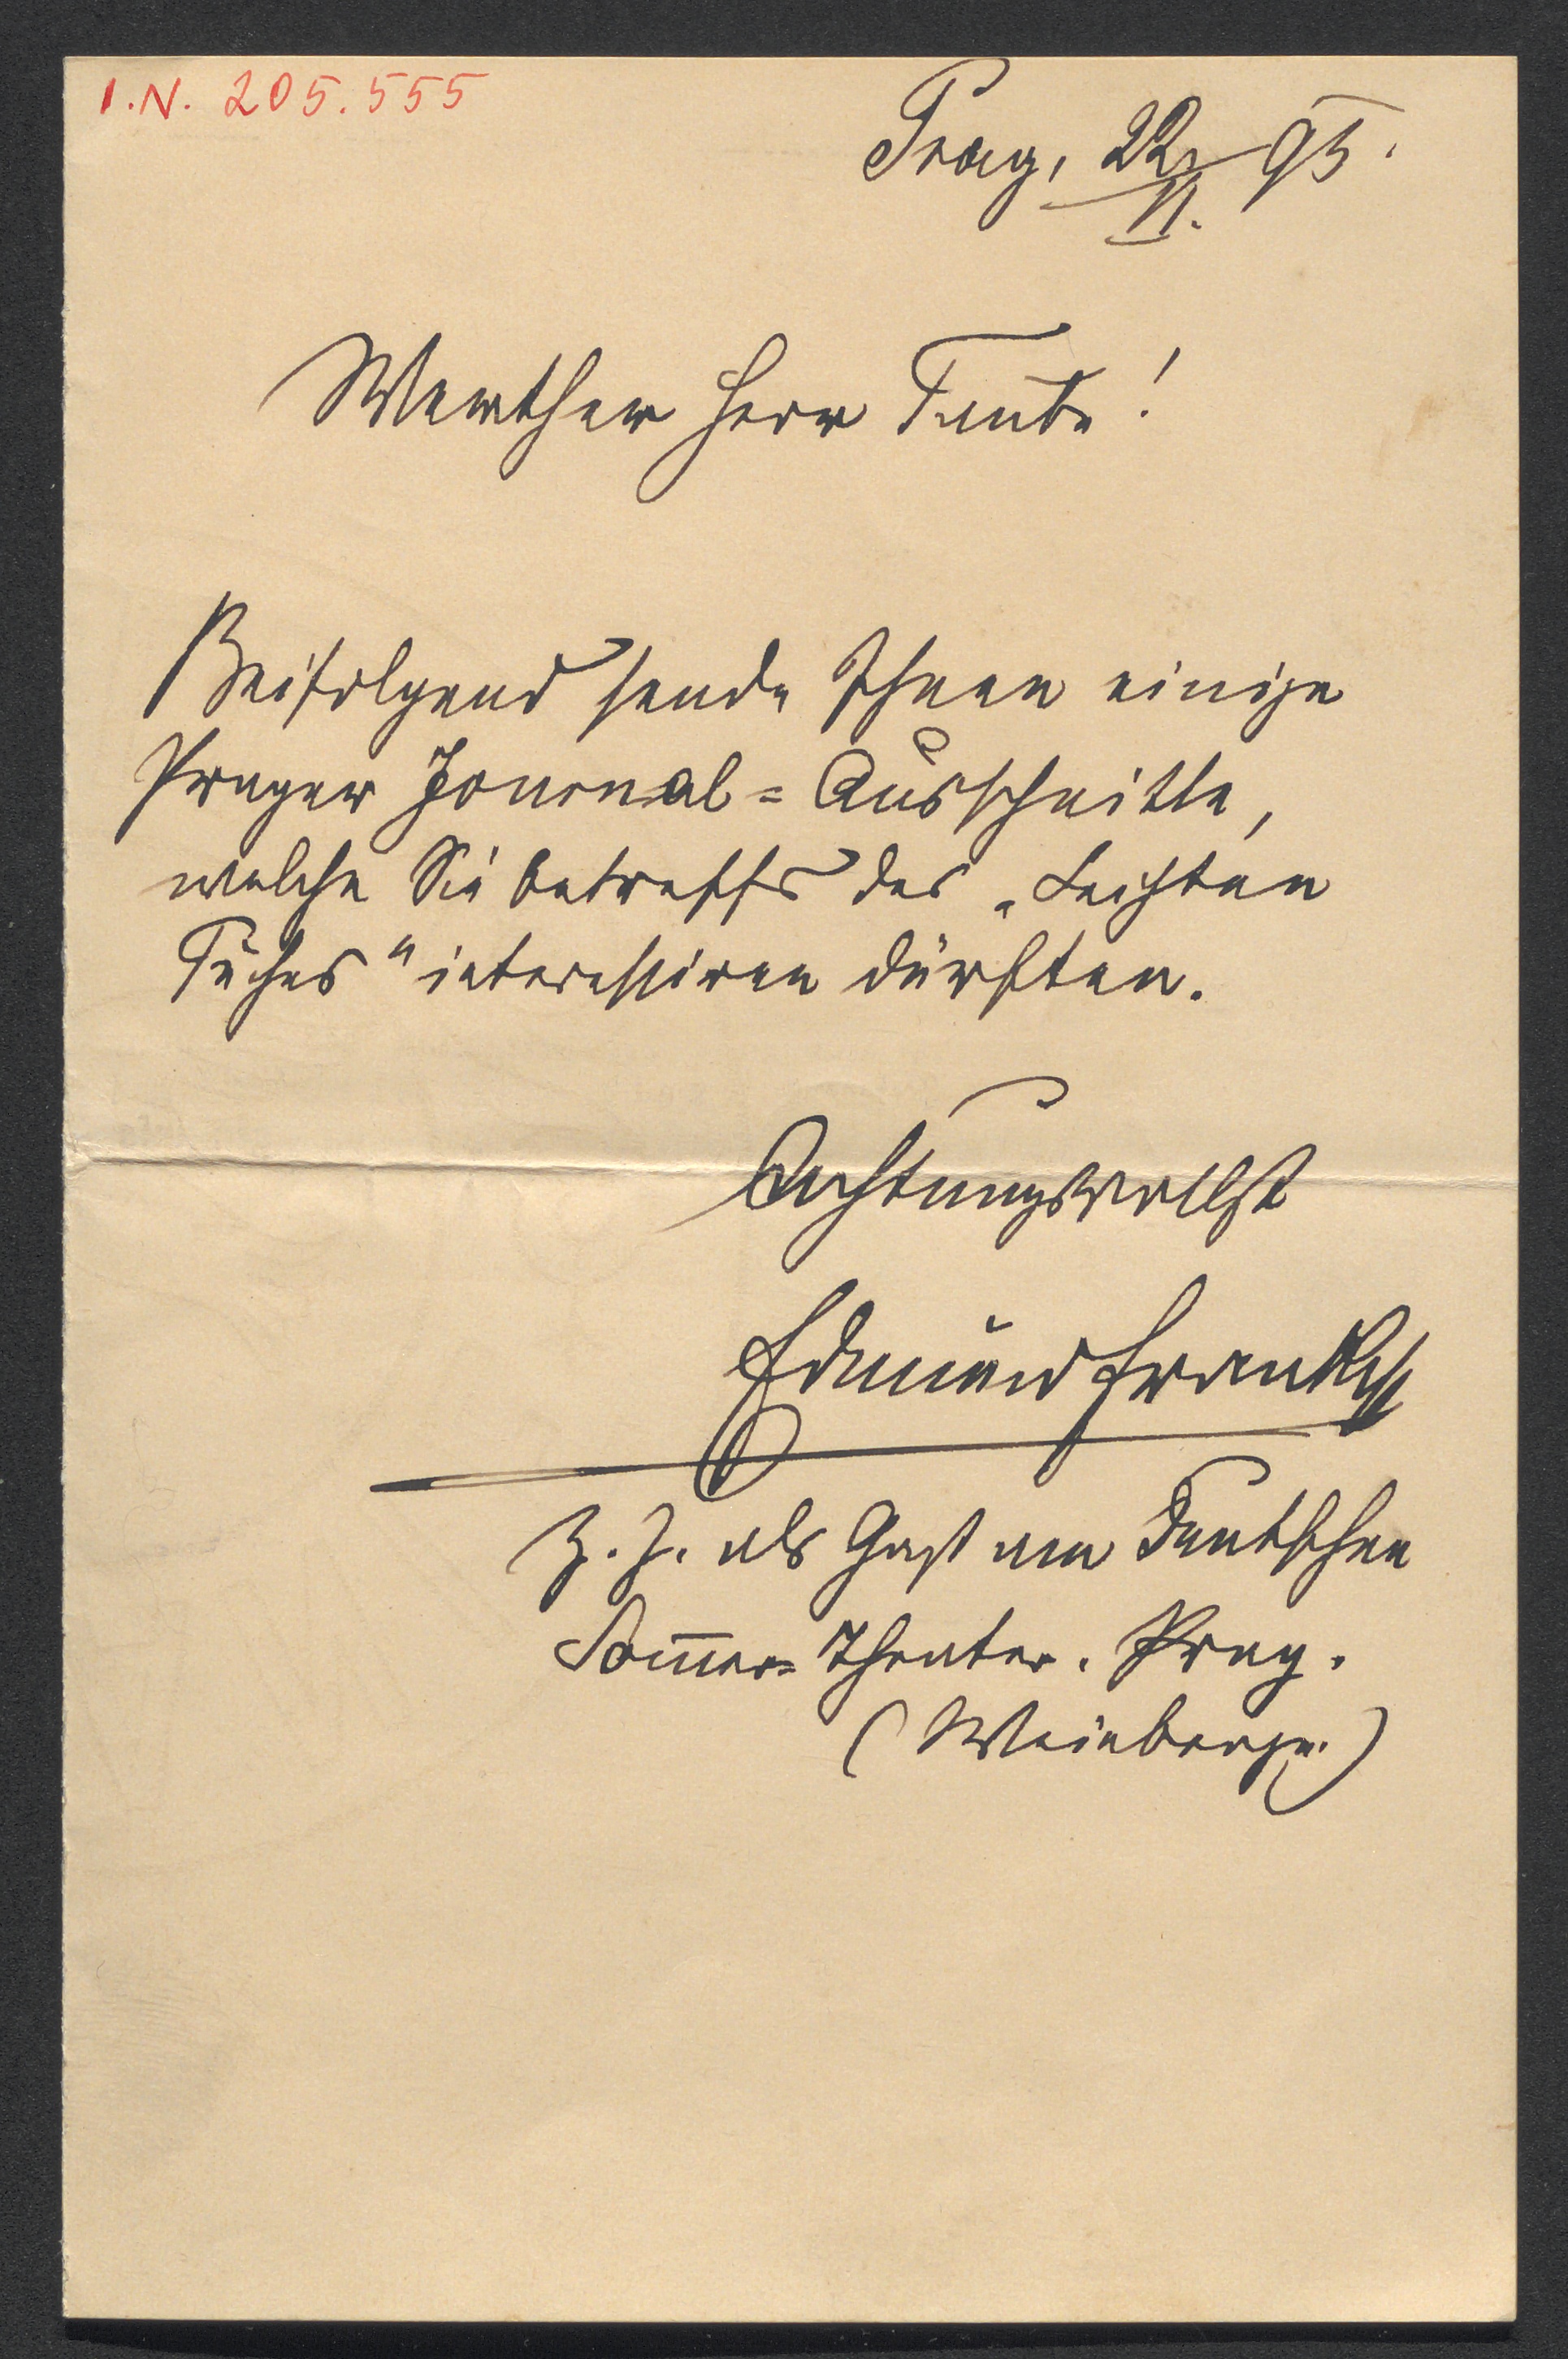 I.N. 205.555
Prag, 22/VI. 95.
Werther Herr Taube!
Beifolgend sende Ihnen einige
Prager Journal=Ausschnitte,
welche Sie betreffs des „Leichten
Tuches" interessiren dürften.
Achtungsvollst
Edmund
z. Z. als Gast am Deutschen
Som̅er=Theater. Prag.
(Weinberge.)